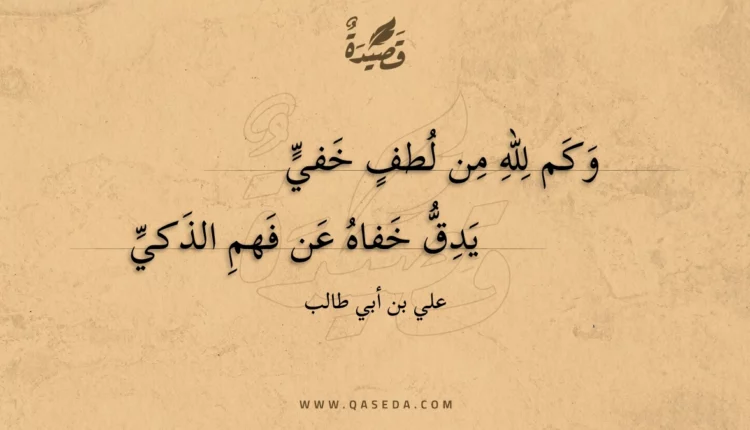 قَصِيْدَةٌ
وَكَم لِلّهِ مِن لُطفٍ خَفيٍّ
يَدِقُّ خَفاهُ عَن فَهمِ الذَكيِّ
علي بن أبي طالب
WWW.QASEDA.COM